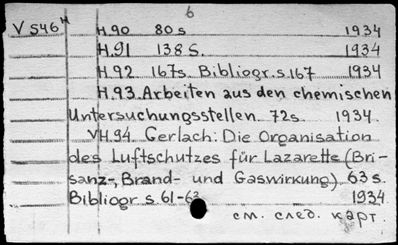 6
V 546 H H.90 80 s 1934
H.91 138 S. 1934
H.92 167s. Bibliogr. s.167 1934
H.93 Arbeiten aus den chemischen
Untersuchungsstellen 72s. 1934.
VH.94 Gerlach: Die Organisation
des Luftschutzes für Lazarette (Bri-
sanz-, Brand- und Gaswirkung) 63 s.
Bibliogr. s. 61-63 1934
см. след. карт.